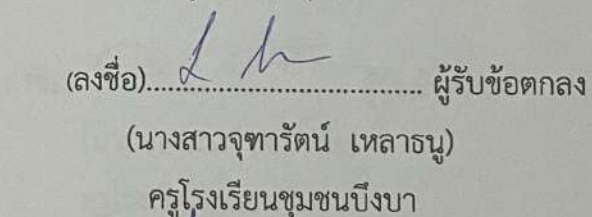 (ลงชื่อ)................................... ผู้รับข้อตกลง
(นางสาวจุฑารัตน์ เหลาธนู)
ครูโรงเรียนชุมชนบึงบา